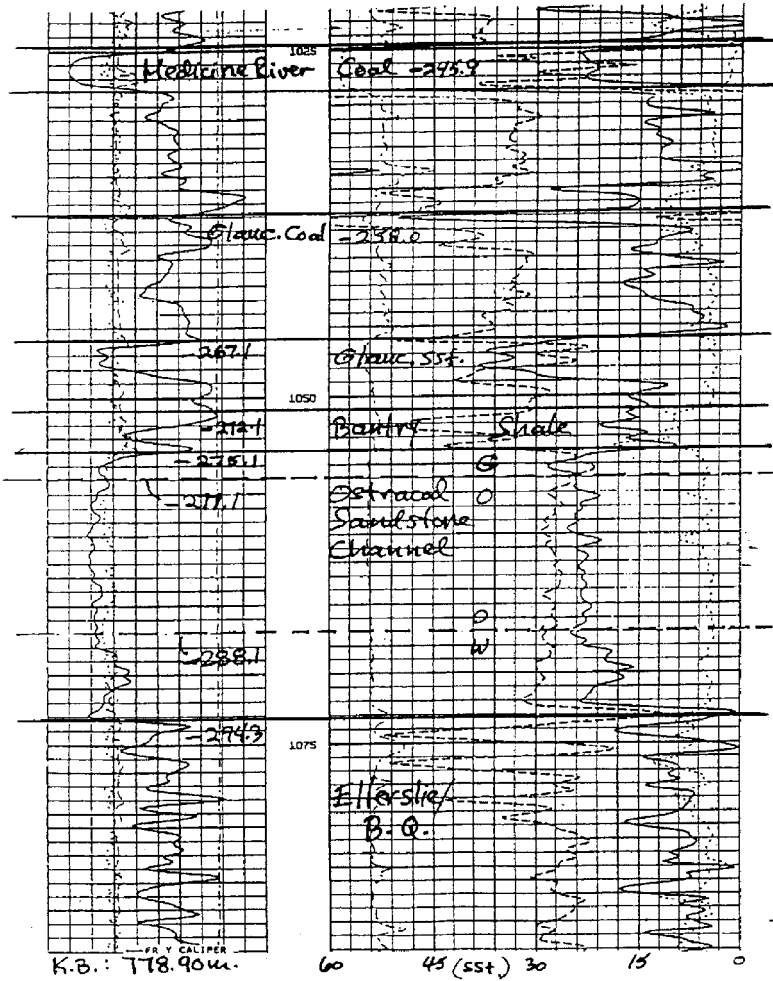 1025
Medicine River Coal -245.9
Glauc. Coal -258.0
-267.1 Glauc. sst.
1050
-272.1 Bantry Shale
-275.1 G
-277.1 Ostracod O
Sandstone
Channel
O
W
-288.1
-294.3
1075
Ellerslie/
B.Q.
FR Y CALIPER
K.B.: 778.90m. 60 45 (sst.) 30 15 0